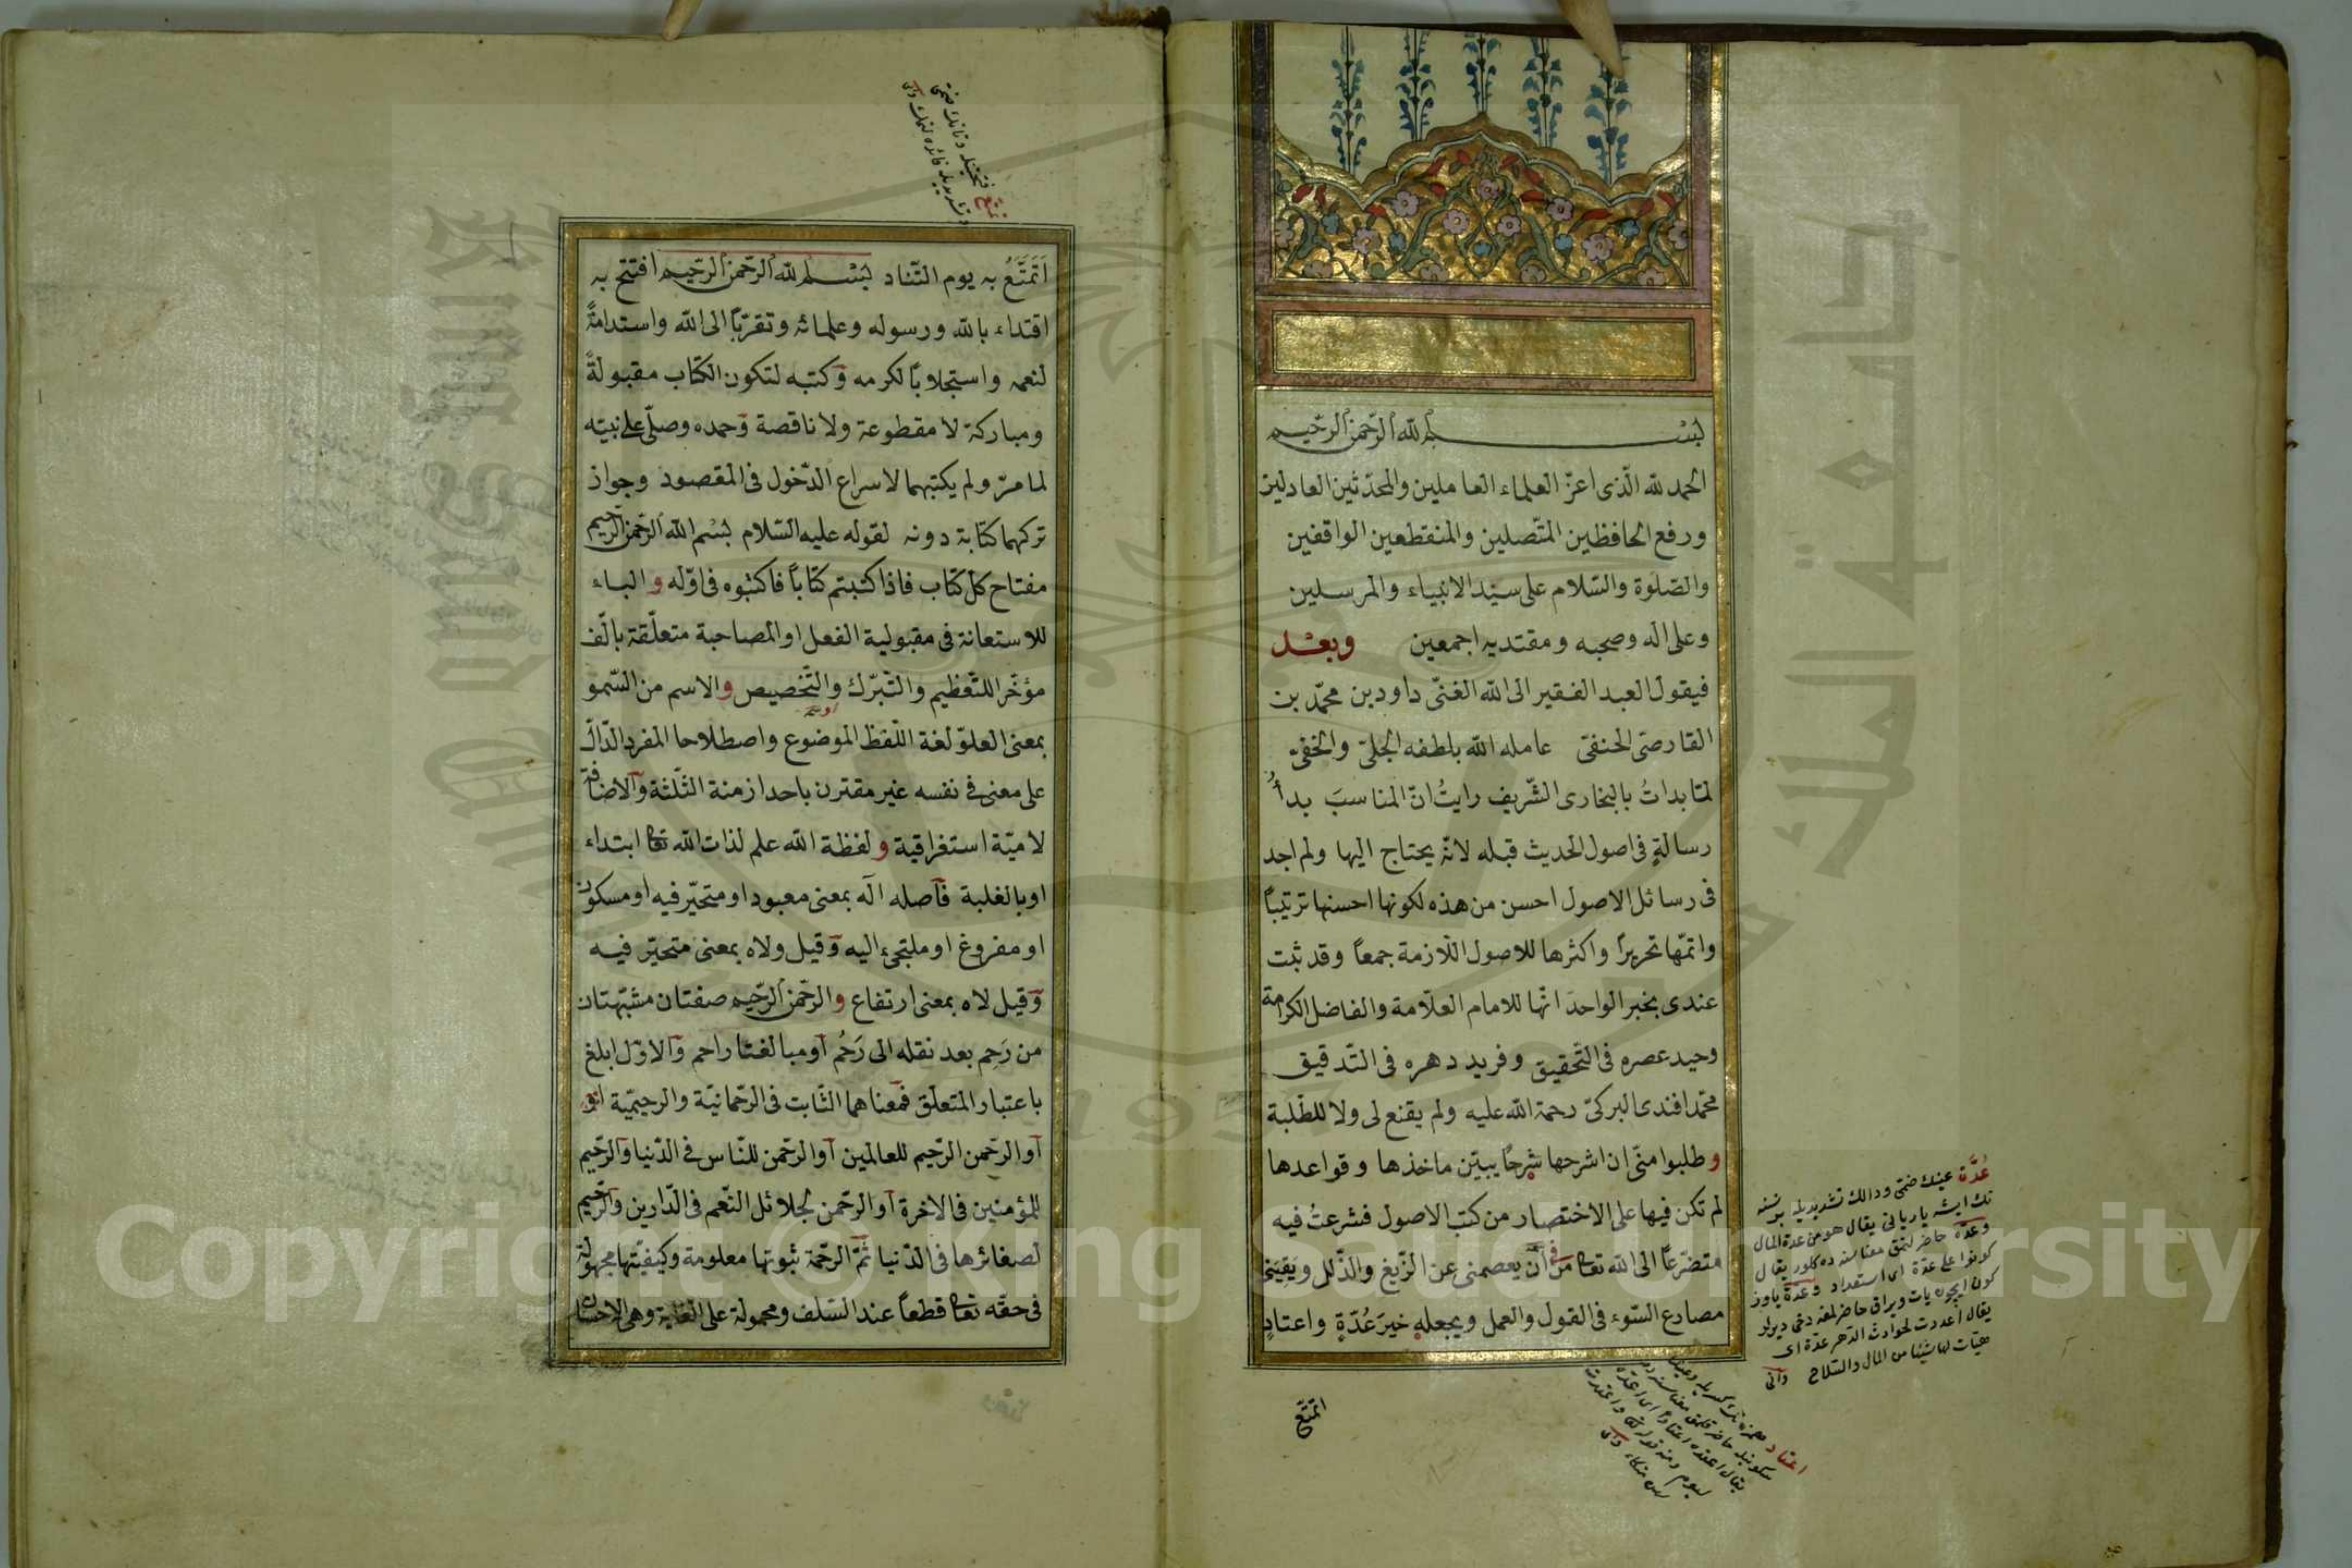 بسم الله الرحمن الرحيم
الحمد لله الّذى اعزّ العلماء العاملين والمحدّثين العادلين
ورفع الحافظين المتّصلين والمنقطعين الواقفين
والصّلوة والسّلام على سيّد الانبياء والمرسلين
وعلى اله وصحبه ومقتديه اجمعين وبعد
فيقول العبد الفقير الى الله الغنّى داود بن محمّد بن
القارصىّ الحنفىّ عامله الله بلطفه الجلىّ والخفىّ
لمّا بداتُ بالبخارى الشّريف رايتُ انّ المناسبَ بدأُ
رسالةٍ فى اصول الحديث قبله لانّه يحتاج اليها ولم اجد
فى رسائل الاصول احسن من هذه لكونها احسنها ترتيباً
واتمّها تحريراً واكثرها للاصول اللّازمة جمعاً وقد ثبت
عندى بخبر الواحد انّها للامام العلّامة والفاضل الكرامة
وحيد عصره فى التّحقيق وفريد دهره فى التّدقيق
محمّد افندى البركىّ رحمة الله عليه ولم يقنع لى ولا للطّلبة
وطلبوا منّى ان اشرحها شرحاً يبيّن ماخذها وقواعدها
لم تكن فيها على الاختصار من كتب الاصول فشرعتُ فيه
متضرّعاً الى الله تعا من انّه يعصمنى عن الزّيغ والذّلل ويَقِيَنى
مصادع السّوء فى القول والعمل ويجعله خيرَ عُدّةٍ واعتادٍ
اتمتّع
عُدَّة عينك ضمّى ودالك تشديديله برنسنه
نك ايشه ياريانى يقال هو من عدة المال
وعدّة حاضر لنمق معناسنه ده كلور يقال
كونوا على عدّة اى استعداد وعدّة ياوز
كون ايچون يات ويراق حاضر لمغه دخى ديرلر
يقال اعددت لحوادث الدّهر عدّة اى
هيّات لها شيئا من المال والسّلاح وانى
اَتَمَتَّعُ به يوم التّناد بسم الله الرّحمن الرّحيم افتتح به
اقتداء بالله ورسوله وعلمائه وتقرّباً الى الله واستدامةً
لنعمه واستجلاباً لكرمه وكتبه لتكون الكتاب مقبولةً
ومباركة لا مقطوعة ولا ناقصة وحمده وصلّى على نبيّه
لما مرّ ولم يكتبهما لاسراع الدّخول فى المقصود وجواز
تركهما كتابة دونه لقوله عليه السّلام بسم الله الرّحمن الرّحيم
مفتاح كلّ كتاب فاذا كتبتم كتاباً فاكتبوه فى اوّله والباء
للاستعانة فى مقبولية الفعل او المصاحبة متعلّقة بالّف
مؤخّرا للتّعظيم والتّبرّك والتّخصيص والاسم من السّمو
بمعنى العلوّ لغة اللّفظ الموضوع واصطلاحا المفرد الدّالّ
على معنى فى نفسه غير مقترن باحد ازمنة الثّلثة والاضافة
لاميّة استغراقية ولفظة الله علم لذات الله تعا ابتداء
او بالغلبة فاصله اله بمعنى معبود او متحيّر فيه او مسكون
او مفروغ او ملتجىء اليه وقيل ولاه بمعنى متحيّر فيه
وقيل لاه بمعنى ارتفاع والرّحمن الرّحيم صفتان مشبّهتان
من رَحِم بعد نقله الى رَحُم او مبالغتا راحم والاوّل ابلغ
باعتبار المتعلّق فمعناهما الثّابت فى الرّحمانيّة والرحيميّة
او الرّحمن الرّحيم للعالمين او الرّحمن للنّاس فى الدّنيا والرّحيم
للمؤمنين فى الاخرة او الرّحمن لجلائل النّعم فى الدّارين والرّحيم
لصغائرها فى الدّنيا ثمّ الرّحمة ثبوتها معلومة وكيفيّتها مجهولة
فى حقّه تعا قطعاً عند السّلف ومحمولة على الغاية وهى الاحسان
Copyright © King Saud University